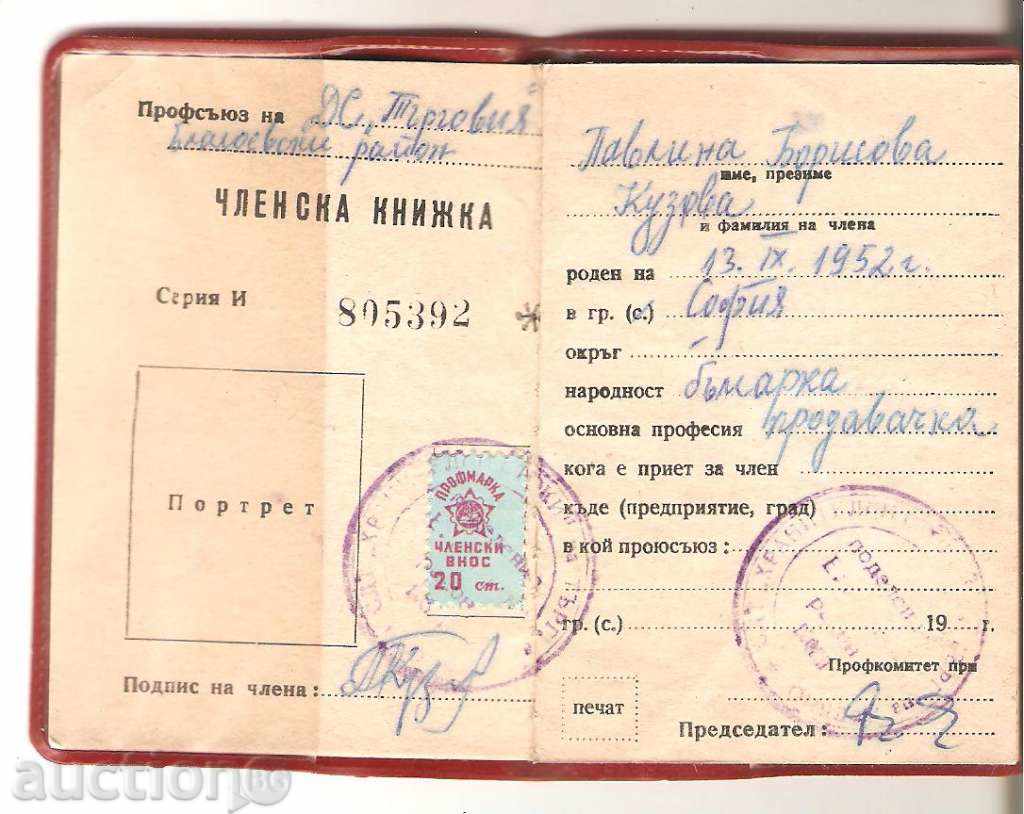 Профсъюз на ДС „Търговия"
Благоевски район
ЧЛЕНСКА КНИЖКА
Серия И 805392
Портрет
ПРОФМАРКА
ЧЛЕНСКИ
ВНОС
20 ст.
Подпис на члена:
Павлина Борисова
име, презиме
Кузова
и фамилия на члена
роден на 13. IX. 1952 г.
в гр. (с.) София
окръг
народност българка
основна професия продавачка
кога е приет за член
къде (предприятие, град)
в кой проюсъюз:
гр. (с.) 19 г.
Профкомитет при
печат
Председател:
auction BG